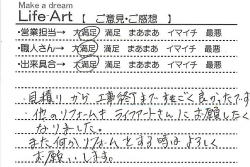 Make a dream
Life Art 【 ご意見・ご感想 】
・営業担当→ 大満足 満足 まあまあ イマイチ 最悪
・職人さん→ 大満足 満足 まあまあ イマイチ 最悪
・出来具合→ 大満足 満足 まあまあ イマイチ 最悪
見積りから工事終了まですごく良かったです
他のリフォームもライフアートさんにお願いしたく
なりました。
また何かリフォームとする時はよろしく
お願いします。